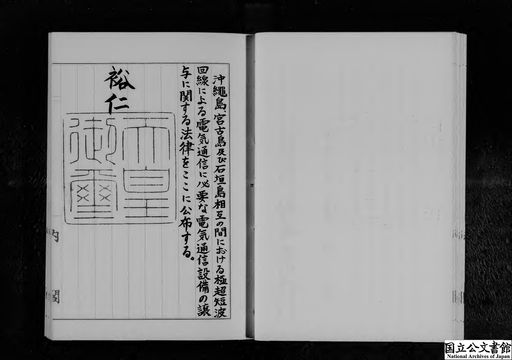 沖繩島、宮古島及び石垣島相互の間における極超短波
回線による電気通信に必要な電気通信設備の譲
与に関する法律をここに公布する。
裕仁
天皇
御璽
内閣
国立公文書館
National Archives of Japan